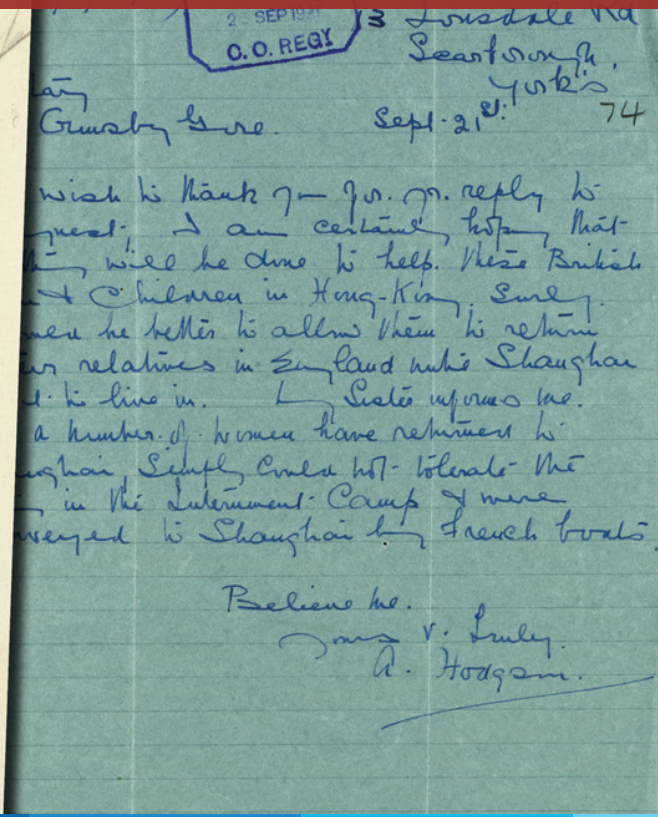 2 SEP 19
C. O. REGY
3 Lonsdale Rd
Scarborough,
York's
74
Ormsby Gore. Sept. 21st.
wish to thank you for yr. reply to
quest; I am certainly hoping that
thing will be done to help these British
& Children in Hong-Kong. Surely.
be better to allow them to return
relatives in England until Shanghai
to live in. My Sister informs me.
a number of women have returned to
nghai, simply could not tolerate the
in the Internment Camp & were
nveyed to Shanghai by French boats.
Believe me.
Yours v. Truly.
A. Hodgson.